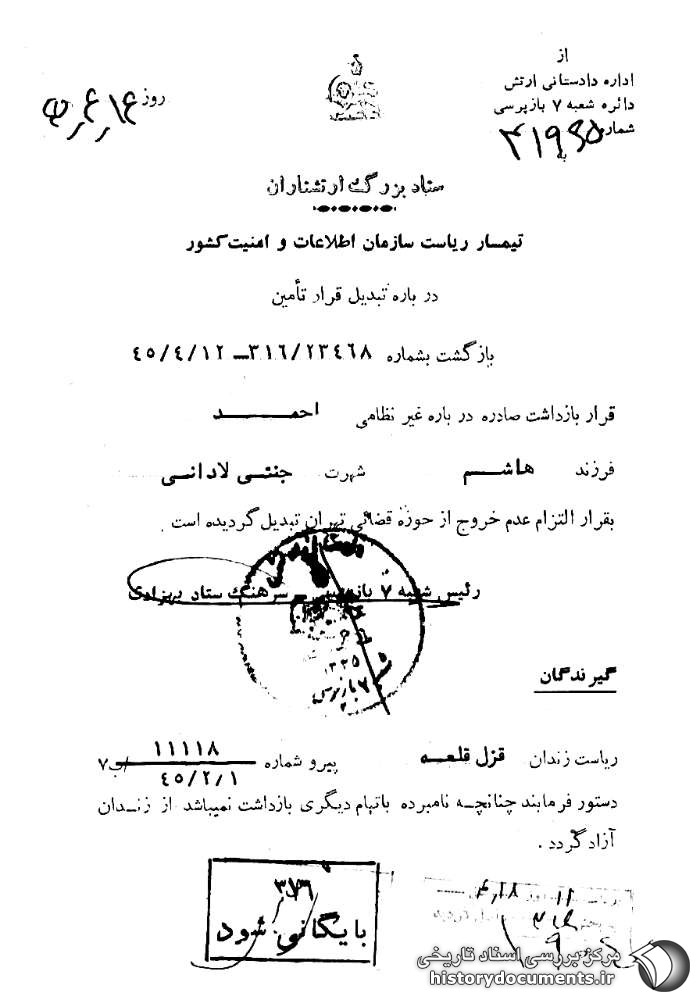 از
اداره دادستانی ارتش
دائره شعبه ۷ بازپرسی
شماره
به
روز
ستاد بزرگ ارتشتاران
تیمسار ریاست سازمان اطلاعات و امنیت کشور
در باره تبدیل قرار تأمین
بازگشت بشماره ۳۱٦/۲۳٤٦۸ــ ٤٥/٤/۱۲
قرار بازداشت صادره در باره غیر نظامی احمــــــد
فرزند هاشــم شهرت جنتــی لادانــی
بقرار التزام عدم خروج از حوزه قضائی تهران تبدیل گردیده است .
رئیس شعبه ۷ سرهنگ ستاد بهزادی
۱۳۳۵
۷ بازپرسی
گیرندگان
ریاست زندان قزل قلعــه پیرو شماره ۱۱۱۱۸
٤٥/۲/۱
دستور فرمایند چنانچــه نامبرده باتهام دیگری بازداشت نمیباشد از زنــدان
آزاد گردد .
۳۱٦
بایگانی شود
مرکز بررسی اسناد تاریخی
historydocuments.ir